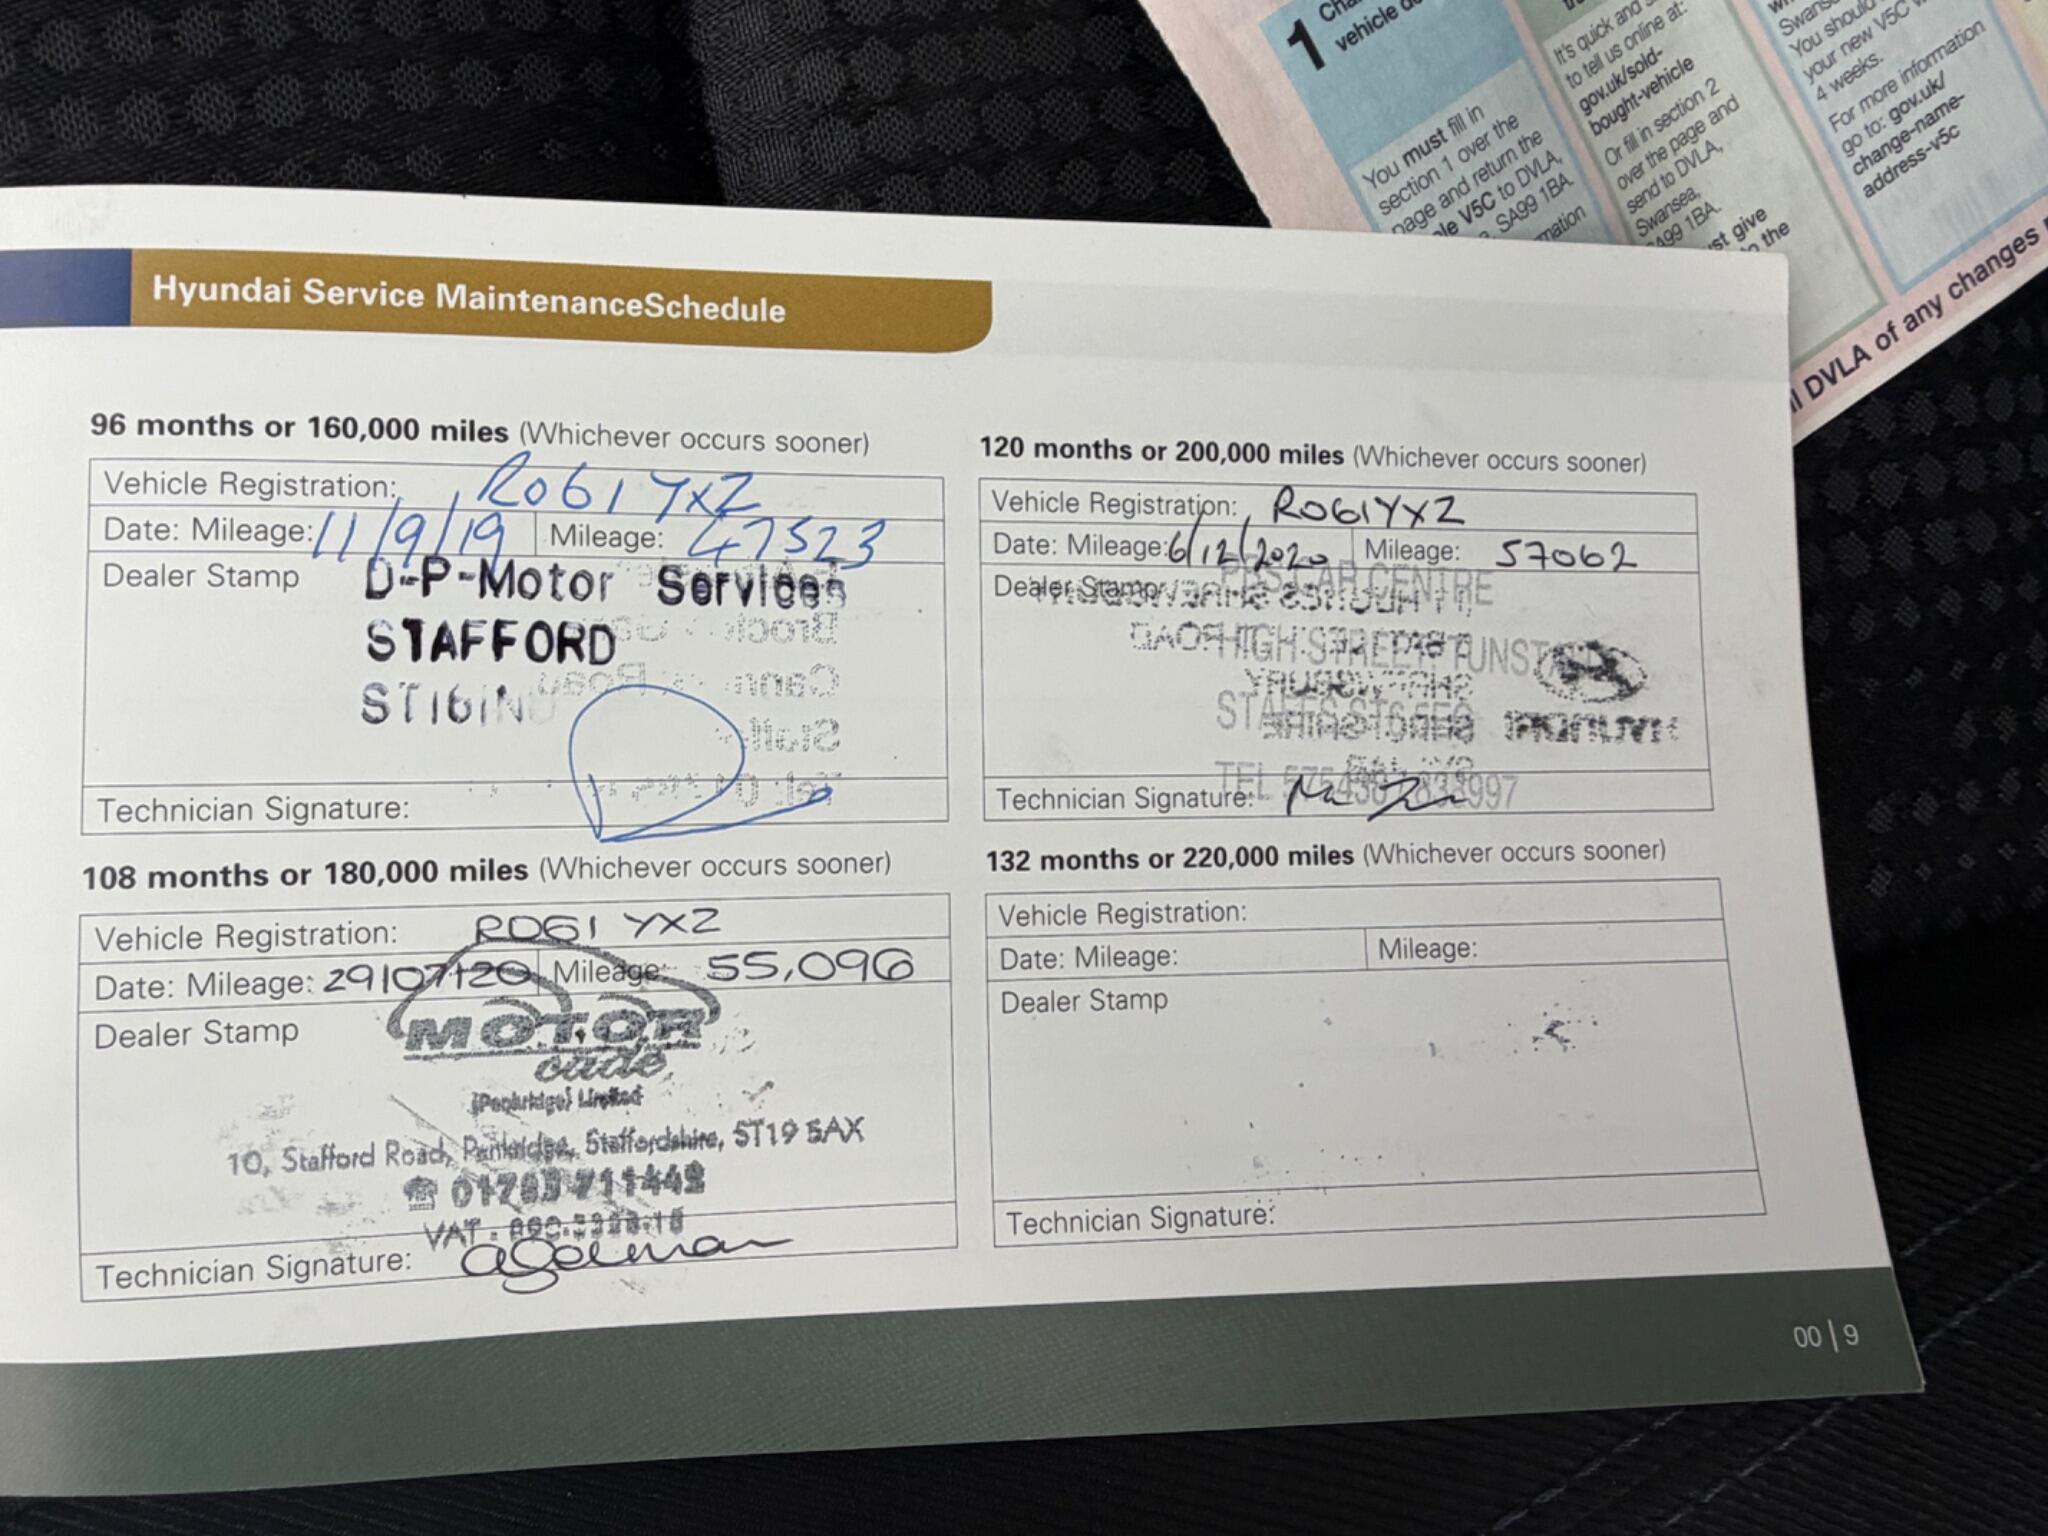 1
vehicle
You must fill in
section 1 over the
page and return the
V5C to DVLA,
SA99 1BA.
It's quick and
to tell us online at:
gov.uk/sold-
bought-vehicle
Or fill in section 2
over the page and
send to DVLA,
Swansea,
SA99 1BA.
give
the
You should
your new V5C
4 weeks.
For more information
go to: gov.uk/
change-name-
address-v5c
DVLA of any changes
Hyundai Service MaintenanceSchedule
96 months or 160,000 miles (Whichever occurs sooner)
Vehicle Registration: RO61 YXZ
Date: Mileage: 11/9/19 Mileage: 47523
Dealer Stamp D-P-Motor Services
STAFFORD
ST161N
Technician Signature:
108 months or 180,000 miles (Whichever occurs sooner)
Vehicle Registration: RO61 YXZ
Date: Mileage: 29/07/20 Mileage: 55,096
Dealer Stamp
MOTOR
(Penkridge) Limited
10, Stafford Road, Penkridge, Staffordshire, ST19 5AX
VAT :
Technician Signature:
120 months or 200,000 miles (Whichever occurs sooner)
Vehicle Registration: RO61YXZ
Date: Mileage: 6/12/2020 Mileage: 57062
Dealer Stamp CAR CENTRE
HIGH STREET
TEL
Technician Signature:
132 months or 220,000 miles (Whichever occurs sooner)
Vehicle Registration:
Date: Mileage: Mileage:
Dealer Stamp
Technician Signature:
00 | 9